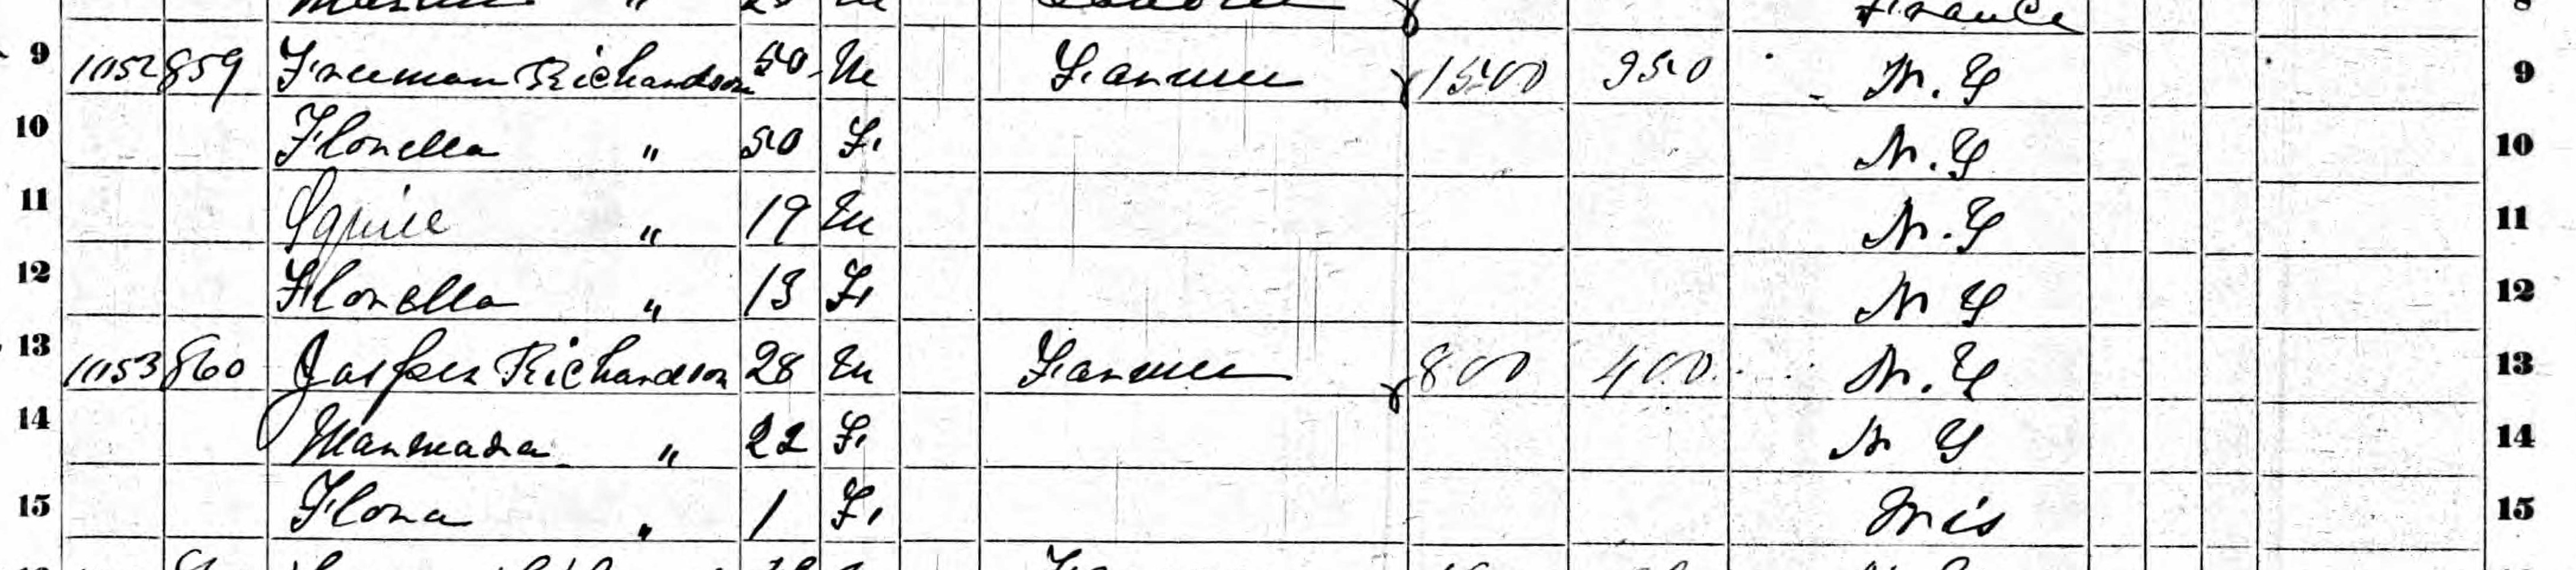 France
9 1052 859 Freeman Richardson 50 M Farmer 1500 350 N.Y 9
10 Florella " 50 F. N.Y 10
11 Squire " 19 M N.Y 11
12 Florella " 13 F. N Y 12
13 1053 860 Jasper Richardson 28 M Farmer 800 400 N.Y 13
14 " 22 F. N Y 14
15 Flora " 1 F. Wis 15